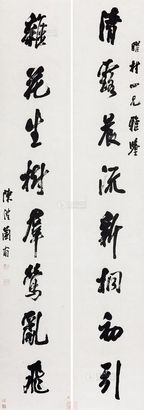 雅村四兄雅鑒
清露晨流新桐初引
雜花生樹羣鶯亂飛
陳澧蘭甫